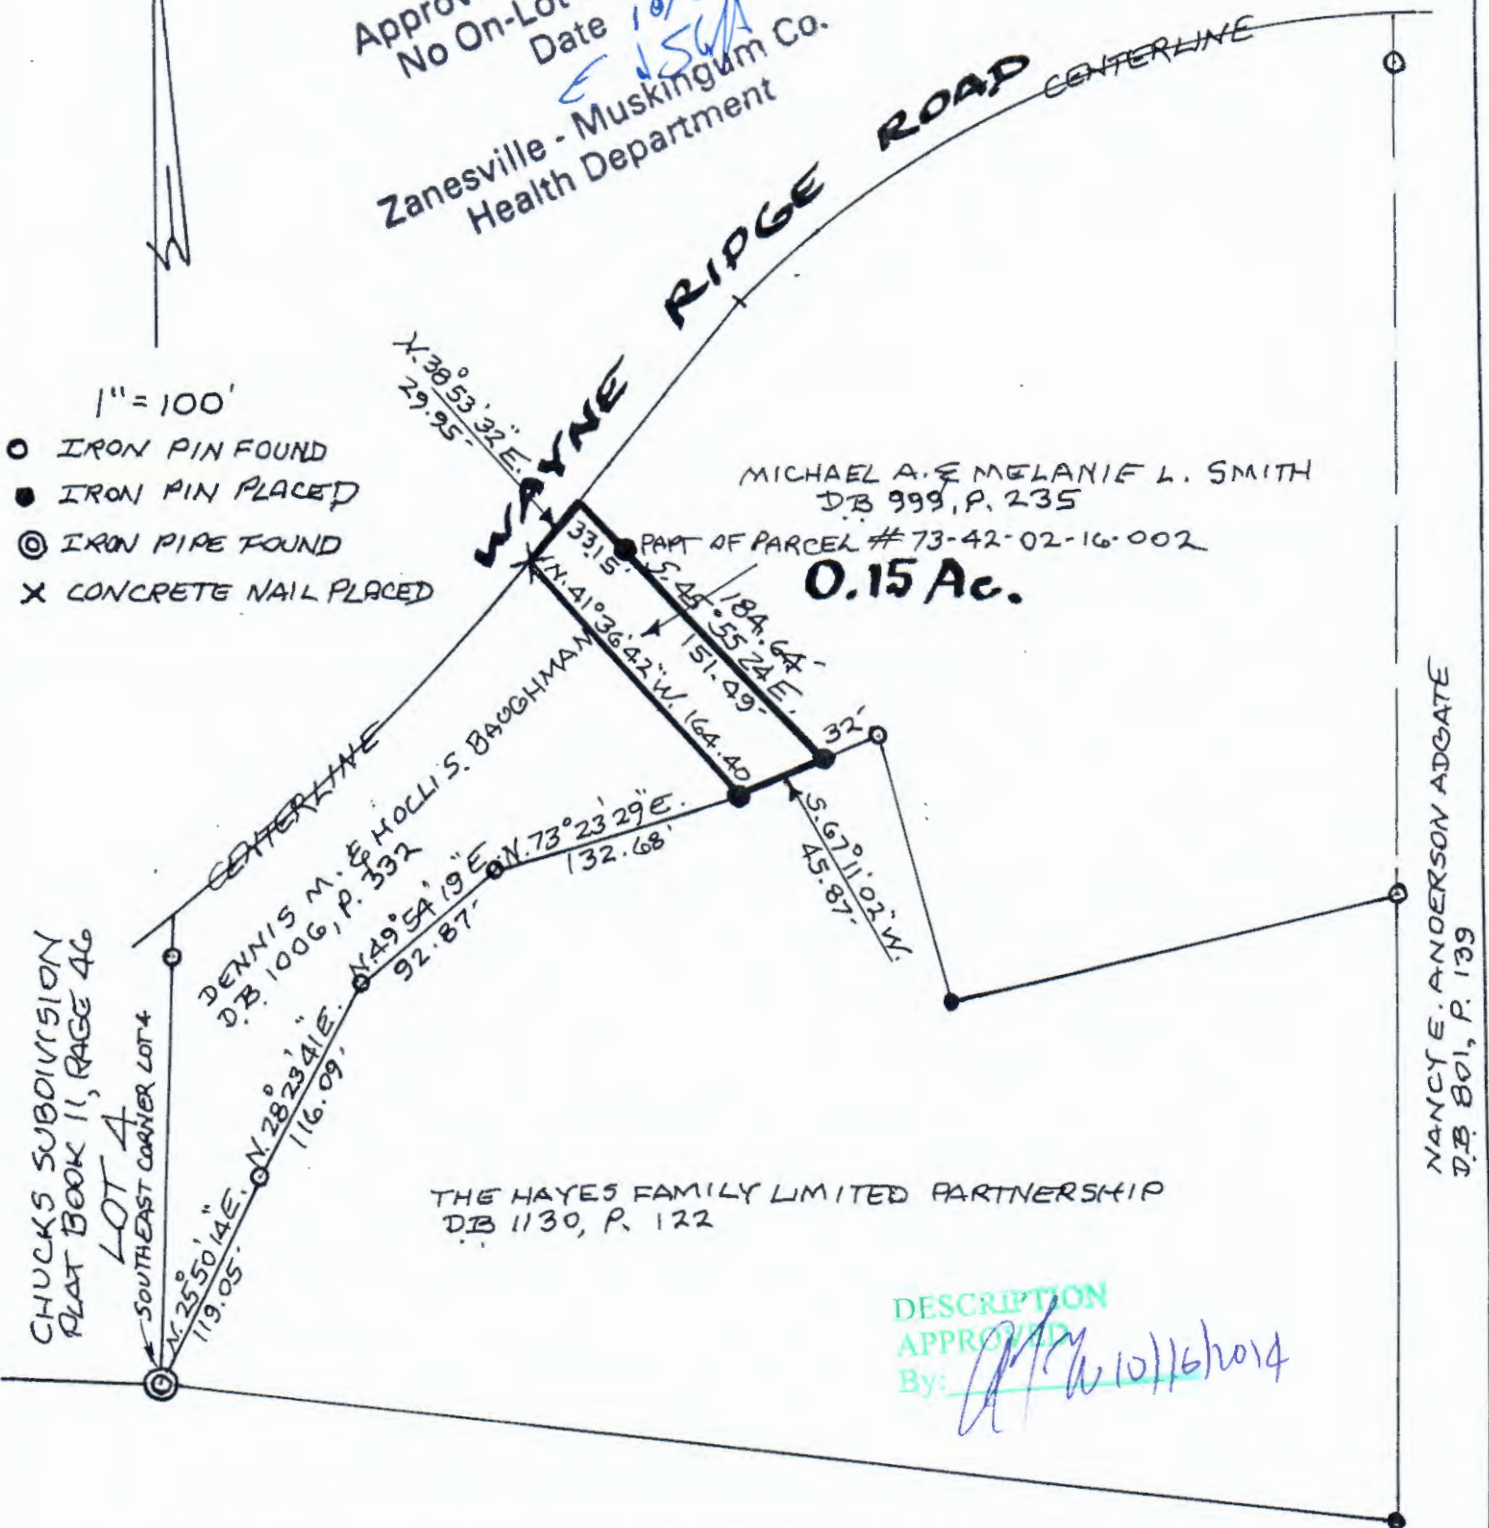 No On-Lot
Date
Zanesville - Muskingum Co.
Health Department
WAYNE RIDGE ROAD
CENTERLINE
1" = 100'
IRON PIN FOUND
IRON PIN PLACED
IRON PIPE FOUND
X CONCRETE NAIL PLACED
N.38°53'32"E.
29.95'
MICHAEL A. & MELANIE L. SMITH
D.B 999, P. 235
PART OF PARCEL # 73-42-02-16-002
0.15 Ac.
33.15'
184.64'
S.45°55'24"E.
151.49'
N.41°36'42"W. 164.40
32'
S.67°11'02"W.
45.87'
CENTERLINE
DENNIS M. & HOLLI S. BAUGHMAN
D.B. 1006, P. 332
N.73°23'29"E.
132.68'
N.49°54'19"E.
92.87'
N.28°23'41"E.
116.09'
N.25°50'14"E.
119.05'
CHUCKS SUBDIVISION
PLAT BOOK 11, PAGE 46
LOT 4
SOUTHEAST CORNER LOT 4
THE HAYES FAMILY LIMITED PARTNERSHIP
D.B 1130, P. 122
NANCY E. ANDERSON ADGATE
D.B. 801, P. 139
DESCRIPTION
APPROVED
By:
10/16/2014